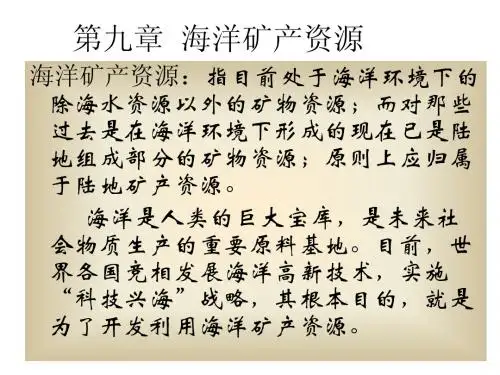 第九章 海洋矿产资源
海洋矿产资源：指目前处于海洋环境下的
除海水资源以外的矿物资源；而对那些
过去是在海洋环境下形成的现在已是陆
地组成部分的矿物资源；原则上应归属
于陆地矿产资源。
海洋是人类的巨大宝库，是未来社
会物质生产的重要原料基地。目前，世
界各国竞相发展海洋高新技术，实施
“科技兴海”战略，其根本目的，就是
为了开发利用海洋矿产资源。